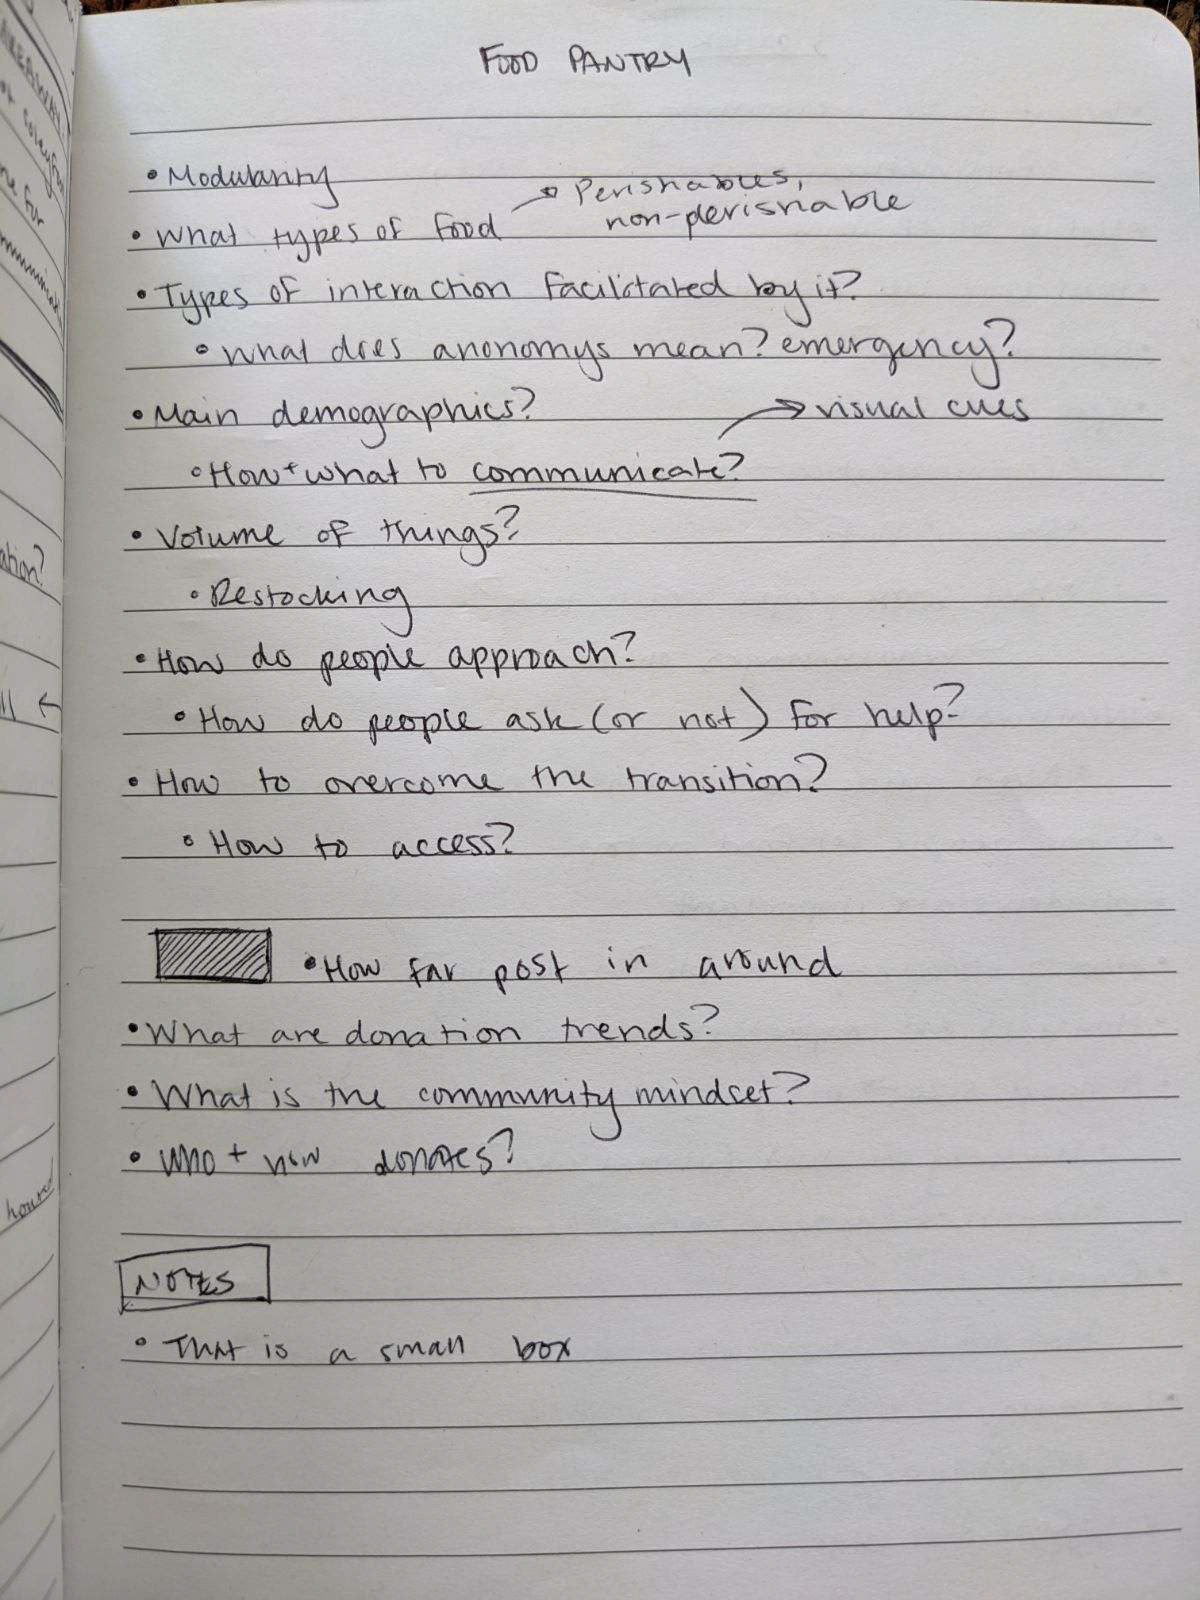 FOOD PANTRY
• Modularity
• What types of food → Perishables,
non-perishable
• Types of interaction facilitated by it?
• What does anonomys mean? emergency?
• Main demographics? → visual cues
• How + what to communicate?
• Volume of things?
• Restocking
• How do people approach?
• How do people ask (or not) for help?
• How to overcome the transition?
• How to access?
• How far post in around
• What are donation trends?
• What is the community mindset?
• Who + how donates?
NOTES
• That is a small box
ation?